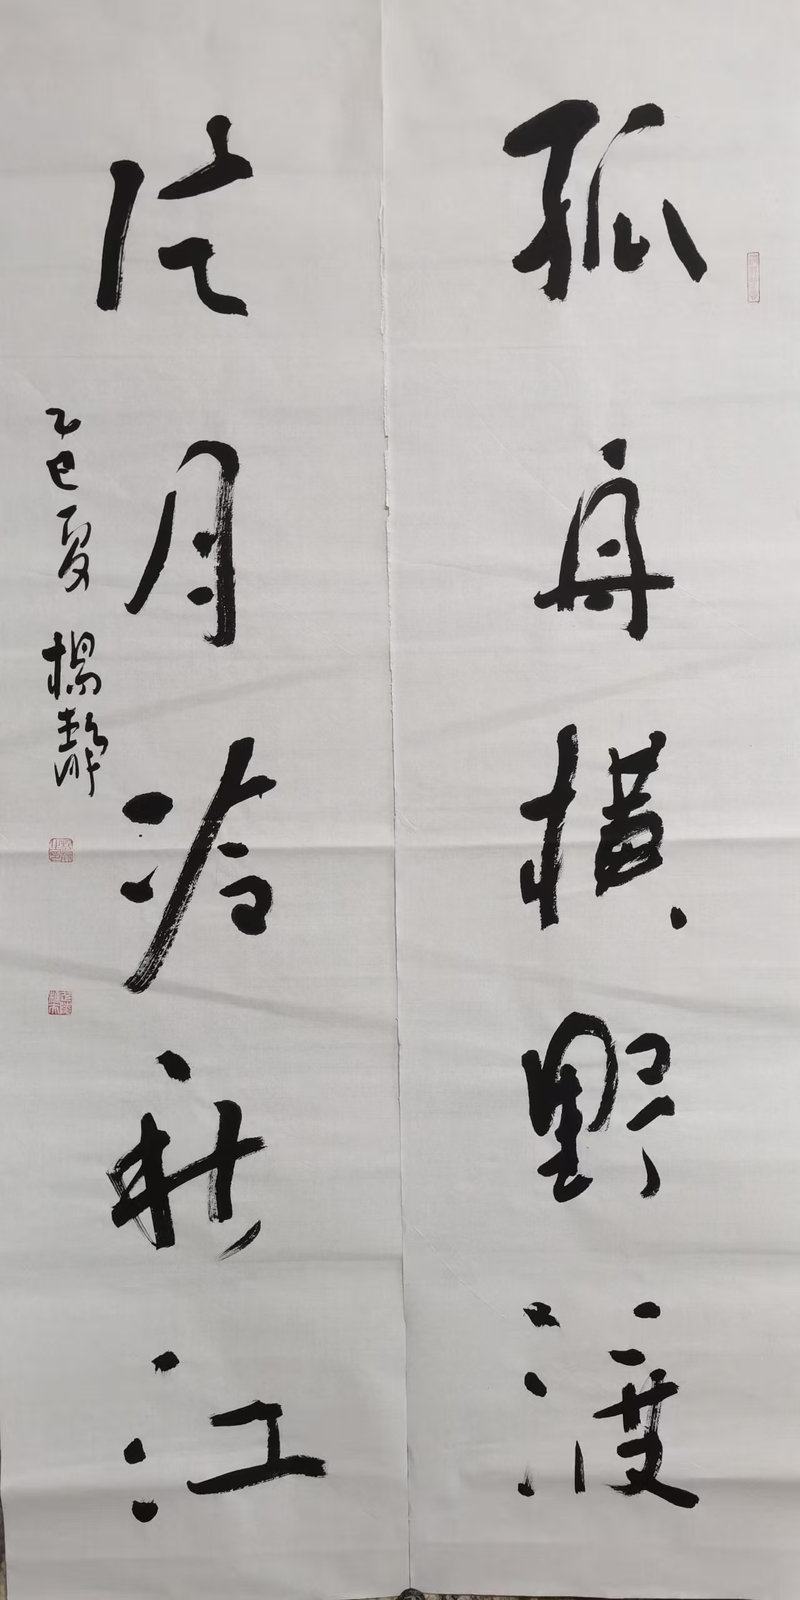 孤舟橫野渡
片月冷秋江
乙巳夏 楊